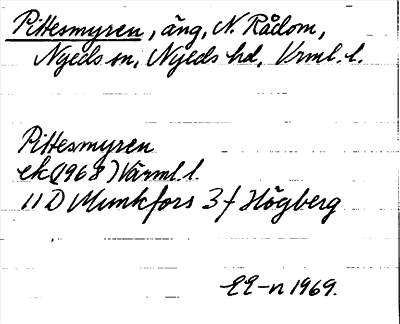 Pittesmyren, äng, N. Rådom,
Nyeds sn, Nyeds hd, Vrml. l.
Pittesmyren
ek (1968) Värml. l.
11 D Munkfors 3 f Högberg
EE-n 1969.